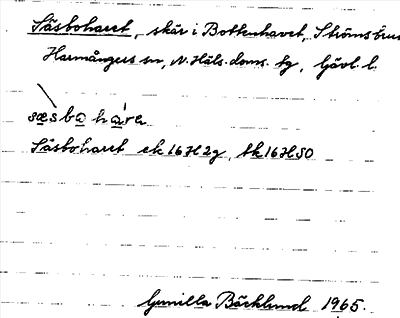 Säsboharet, skär i Bottenhavet, Strömsbruk
Harmångers sn, N. Häls. doms. tg, Gävl. l.
sæsbo háre
Säsboharet ek 16H2g, tk 16H SO
Gunilla Bäcklund 1965.